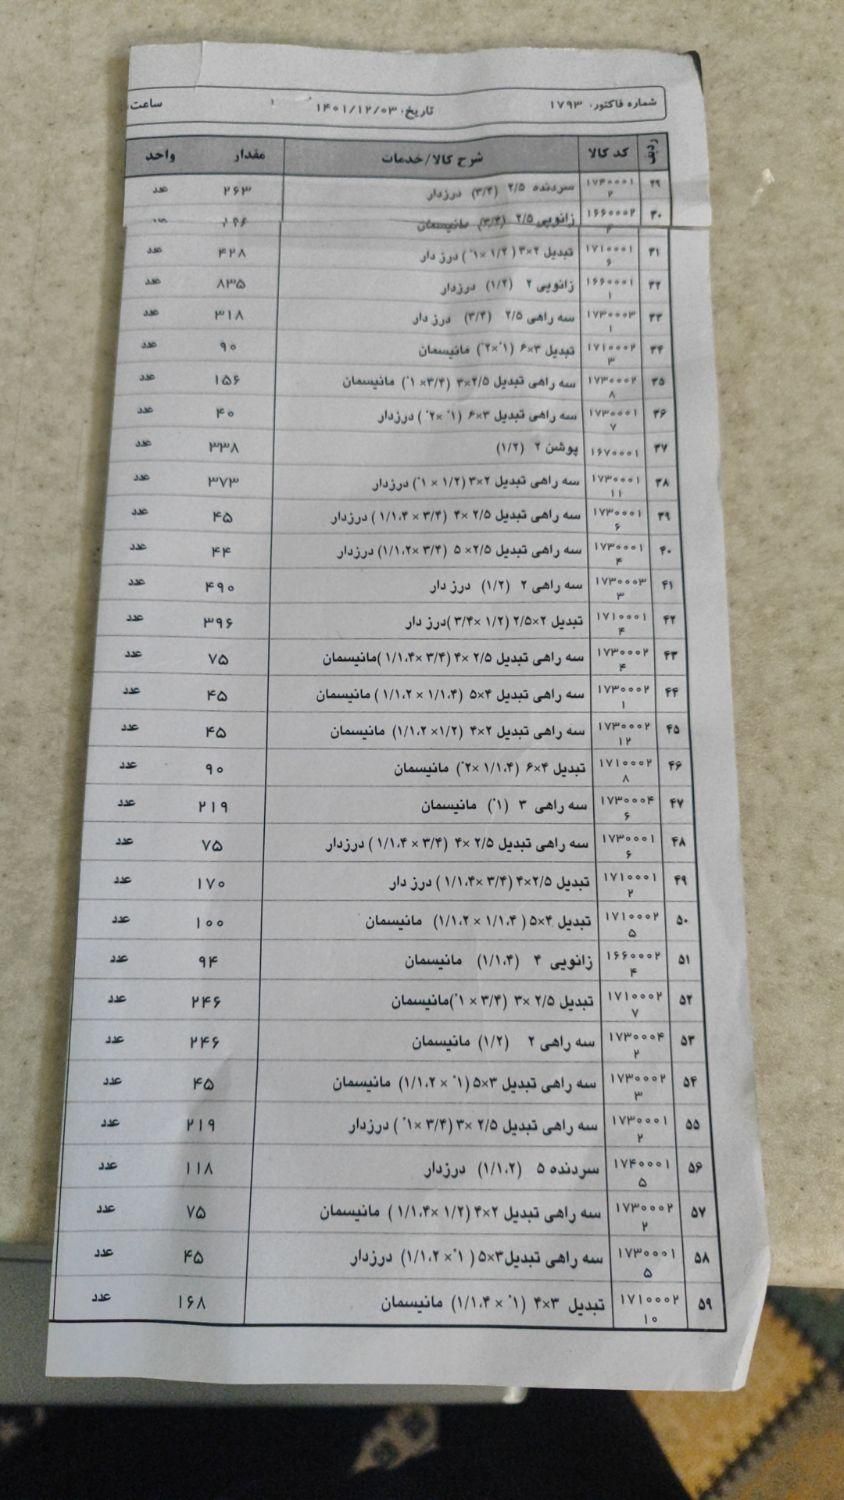 شماره فاکتور: ۱۷۹۳ تاریخ: ۱۴۰۱/۱۲/۰۳ ساعت:
ردیف کد کالا شرح کالا/خدمات مقدار واحد
۲۹ ۱۷۴۰۰۰۱۲ سردنده ۲/۵ (۳/۴) درزدار ۲۶۳ عدد
۳۰ ۱۶۶۰۰۰۲ زانویی ۲/۵ (۳/۴) مانیسمان
۳۱ ۱۷۱۰۰۰۱۶ تبدیل ۲×۳ (۱/۲ ×۱") درز دار ۴۲۸ عدد
۳۲ ۱۶۶۰۰۰۱۱ زانویی ۲ (۱/۲) درزدار ۸۳۵ عدد
۳۳ ۱۷۳۰۰۰۳۱ سه راهی ۲/۵ (۳/۴) درز دار ۳۱۸ عدد
۳۴ ۱۷۱۰۰۰۲۳ تبدیل ۳×۶ (۱"×۲") مانیسمان ۹۰ عدد
۳۵ ۱۷۳۰۰۰۲۸ سه راهی تبدیل ۲/۵×۳ (۳/۴× ۱") مانیسمان ۱۵۶ عدد
۳۶ ۱۷۳۰۰۰۱۷ سه راهی تبدیل ۳×۶ (۱" ×۲") درزدار ۴۰ عدد
۳۷ ۱۶۷۰۰۰۱ پوشن ۲ (۱/۲) ۳۳۸ عدد
۳۸ ۱۷۳۰۰۰۱۱۱ سه راهی تبدیل ۲×۳ (۱/۲ × ۱") درزدار ۳۷۳ عدد
۳۹ ۱۷۳۰۰۰۱۶ سه راهی تبدیل ۲/۵ ×۴ (۳/۴ × ۱/۱،۴) درزدار ۴۵ عدد
۴۰ ۱۷۳۰۰۰۱۴ سه راهی تبدیل ۲/۵× ۵ (۳/۴ ×۱/۱،۲) درزدار ۴۴ عدد
۴۱ ۱۷۳۰۰۰۳۳ سه راهی ۲ (۱/۲) درز دار ۴۹۰ عدد
۴۲ ۱۷۱۰۰۰۱۴ تبدیل ۲×۲/۵ (۱/۲ ×۳/۴)درز دار ۳۹۶ عدد
۴۳ ۱۷۳۰۰۰۲۴ سه راهی تبدیل ۲/۵ ×۴ (۳/۴ ×۱/۱،۴)مانیسمان ۷۵ عدد
۴۴ ۱۷۳۰۰۰۲۱ سه راهی تبدیل ۴×۵ (۱/۱،۴ × ۱/۱،۲) مانیسمان ۴۵ عدد
۴۵ ۱۷۳۰۰۰۲۱۲ سه راهی تبدیل ۲×۴ (۱/۲× ۱/۱،۲) مانیسمان ۴۵ عدد
۴۶ ۱۷۱۰۰۰۲۸ تبدیل ۴×۶ (۱/۱،۴ ×۲") مانیسمان ۹۰ عدد
۴۷ ۱۷۳۰۰۰۴۶ سه راهی ۳ (۱") مانیسمان ۲۱۹ عدد
۴۸ ۱۷۳۰۰۰۱۶ سه راهی تبدیل ۲/۵ ×۴ (۳/۴ × ۱/۱،۴) درزدار ۷۵ عدد
۴۹ ۱۷۱۰۰۰۱۲ تبدیل ۲/۵×۴ (۳/۴ ×۱/۱،۴) درز دار ۱۷۰ عدد
۵۰ ۱۷۱۰۰۰۲۵ تبدیل ۴×۵ (۱/۱،۴ × ۱/۱،۲) مانیسمان ۱۰۰ عدد
۵۱ ۱۶۶۰۰۰۲۴ زانویی ۴ (۱/۱،۴) مانیسمان ۹۴ عدد
۵۲ ۱۷۱۰۰۰۲۷ تبدیل ۲/۵ ×۳ (۳/۴ × ۱")مانیسمان ۲۴۶ عدد
۵۳ ۱۷۳۰۰۰۴۲ سه راهی ۲ (۱/۲) مانیسمان ۲۴۶ عدد
۵۴ ۱۷۳۰۰۰۲۳ سه راهی تبدیل ۳×۵ (۱" × ۱/۱،۲) مانیسمان ۴۵ عدد
۵۵ ۱۷۳۰۰۰۱۲ سه راهی تبدیل ۲/۵ ×۳ (۳/۴ ×۱") درزدار ۲۱۹ عدد
۵۶ ۱۷۴۰۰۰۱۵ سردنده ۵ (۱/۱،۲) درزدار ۱۱۸ عدد
۵۷ ۱۷۳۰۰۰۲۲ سه راهی تبدیل ۲×۴ (۱/۲ ×۱/۱،۴) مانیسمان ۷۵ عدد
۵۸ ۱۷۳۰۰۰۱۵ سه راهی تبدیل۳×۵ (۱" ×۱/۱،۲) درزدار ۴۵ عدد
۵۹ ۱۷۱۰۰۰۲۱۰ تبدیل ۳×۴ (۱" × ۱/۱،۴) مانیسمان ۱۶۸ عدد